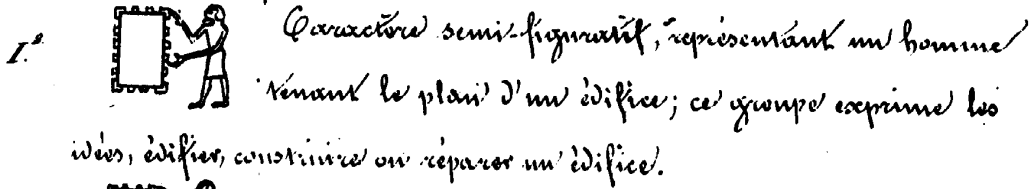 I.° Caractère semi-figuratif, représentant un homme
tenant le plan d'un édifice; ce groupe exprime les
idées, édifier, construire ou réparer un édifice.